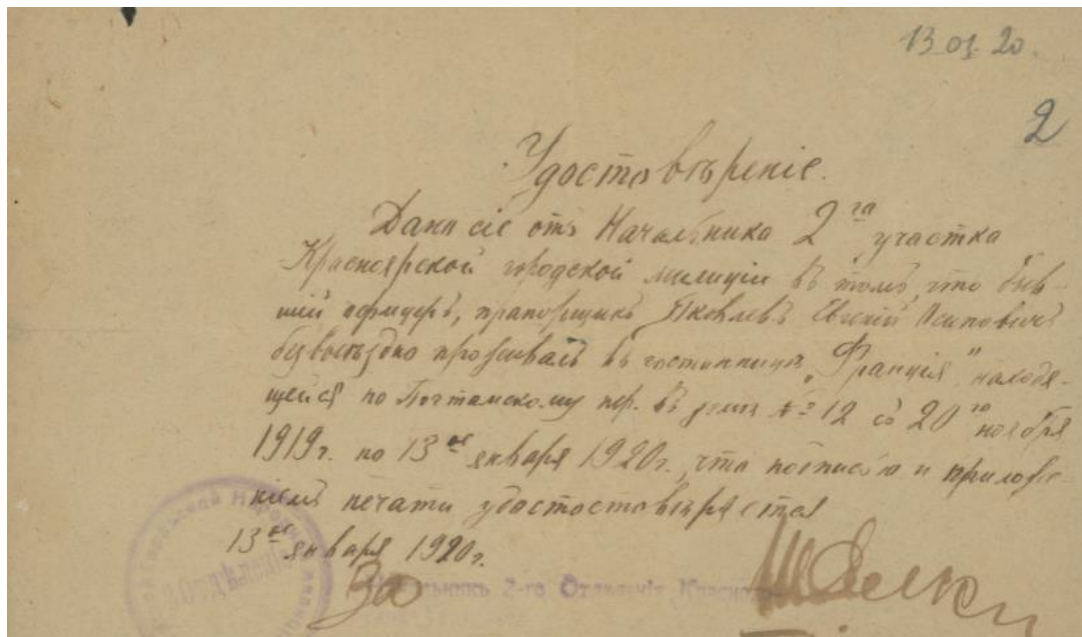 13 01 20.
2
Удостовѣреніе.
Дано сіе отъ Начальника 2го участка
Красноярской городской милиціи въ томъ, что быв-
шій офицеръ, прапорщикъ Яковлевъ Евгеній Осиповичъ
безвыѣздно проживалъ въ гостинницѣ „Франція" находя-
щейся по Почтамскому пер. въ домѣ № 12 съ 20го ноября
1919г. по 13ое января 1920г., что подписью и приложе-
ніемъ печати удостостовѣряется
13ое января 1920г.
За Начальникъ 2-го Отдѣленія Красноя
2 Отдѣленіе